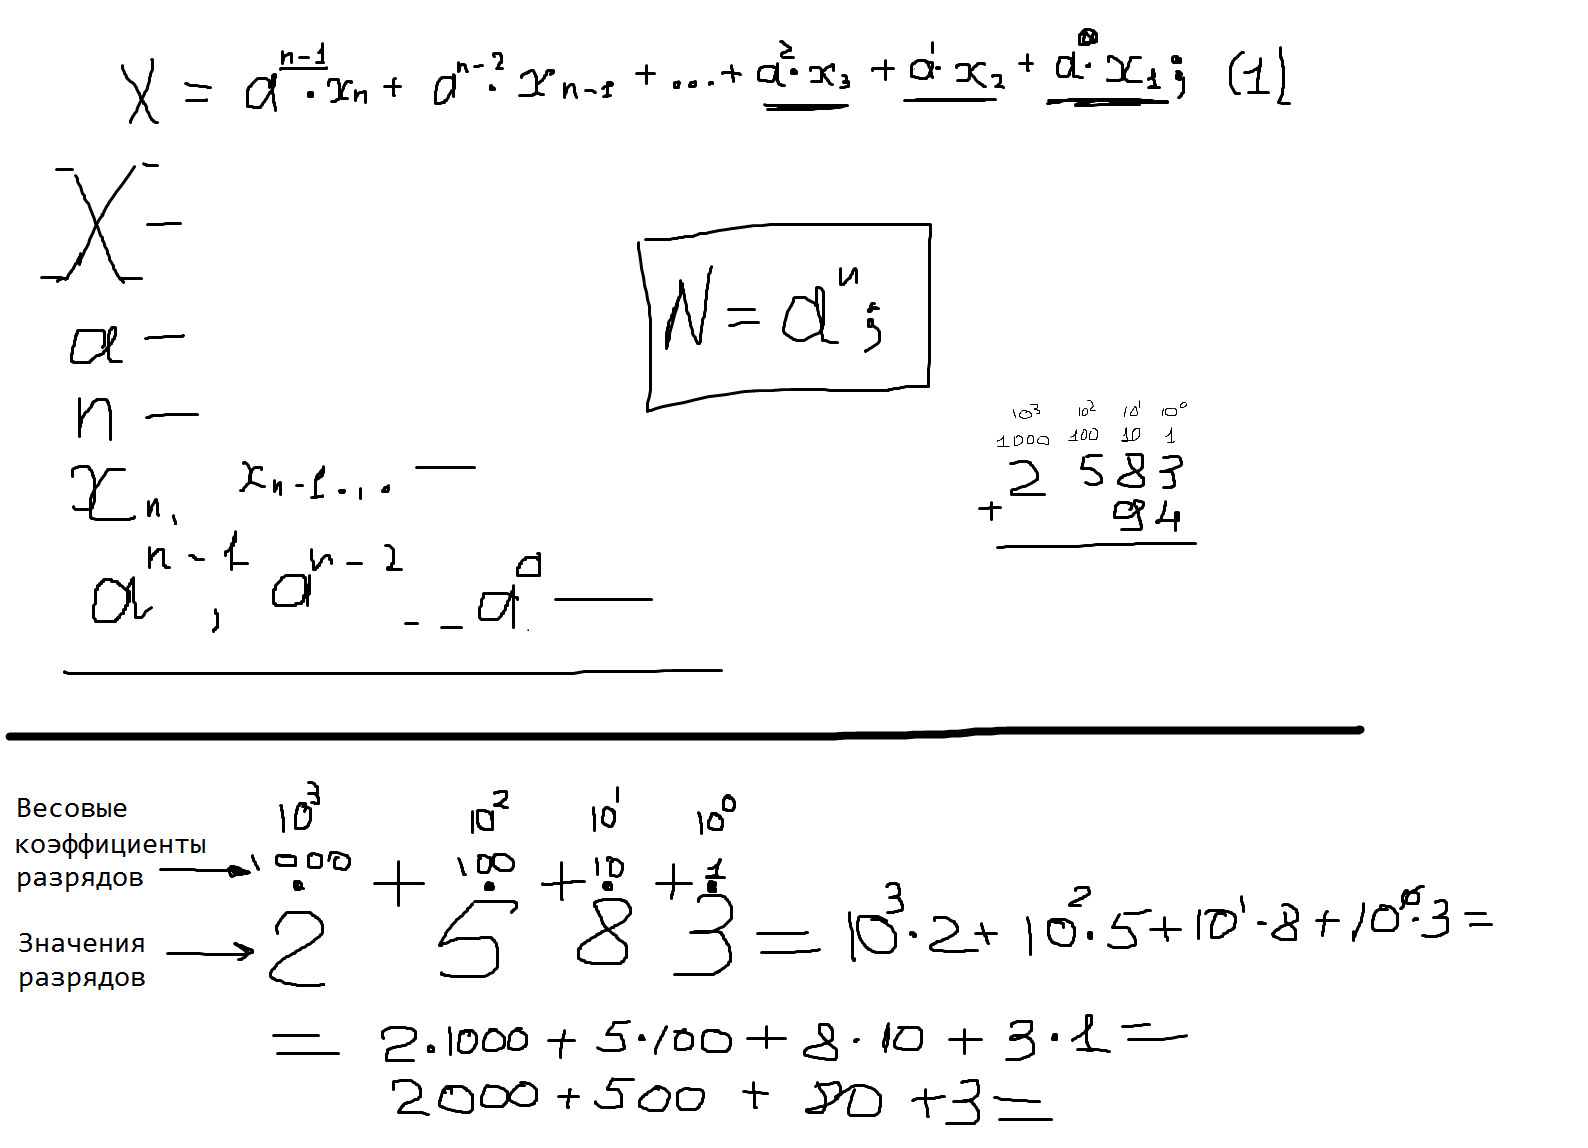 X = a^{n-1}·x_n + a^{n-2}·x_{n-1} + ... + a^2·x_3 + a^1·x_2 + a^0·x_1; (1)
X —
a —
n —
x_n, x_{n-1}... —
a^{n-1}, a^{n-2} -- a^0 —
N = a^n;
10^3 10^2 10^1 10^0
1000 100 10 1
2 5 8 3
+ 9 4
Весовые коэффициенты разрядов
10^3 10^2 10^1 10^0
1000 + 100 + 10 + 1
· · · ·
Значения разрядов
2 5 8 3 = 10^3·2 + 10^2·5 + 10^1·8 + 10^0·3 =
= 2·1000 + 5·100 + 8·10 + 3·1 =
2000 + 500 + 80 + 3 =